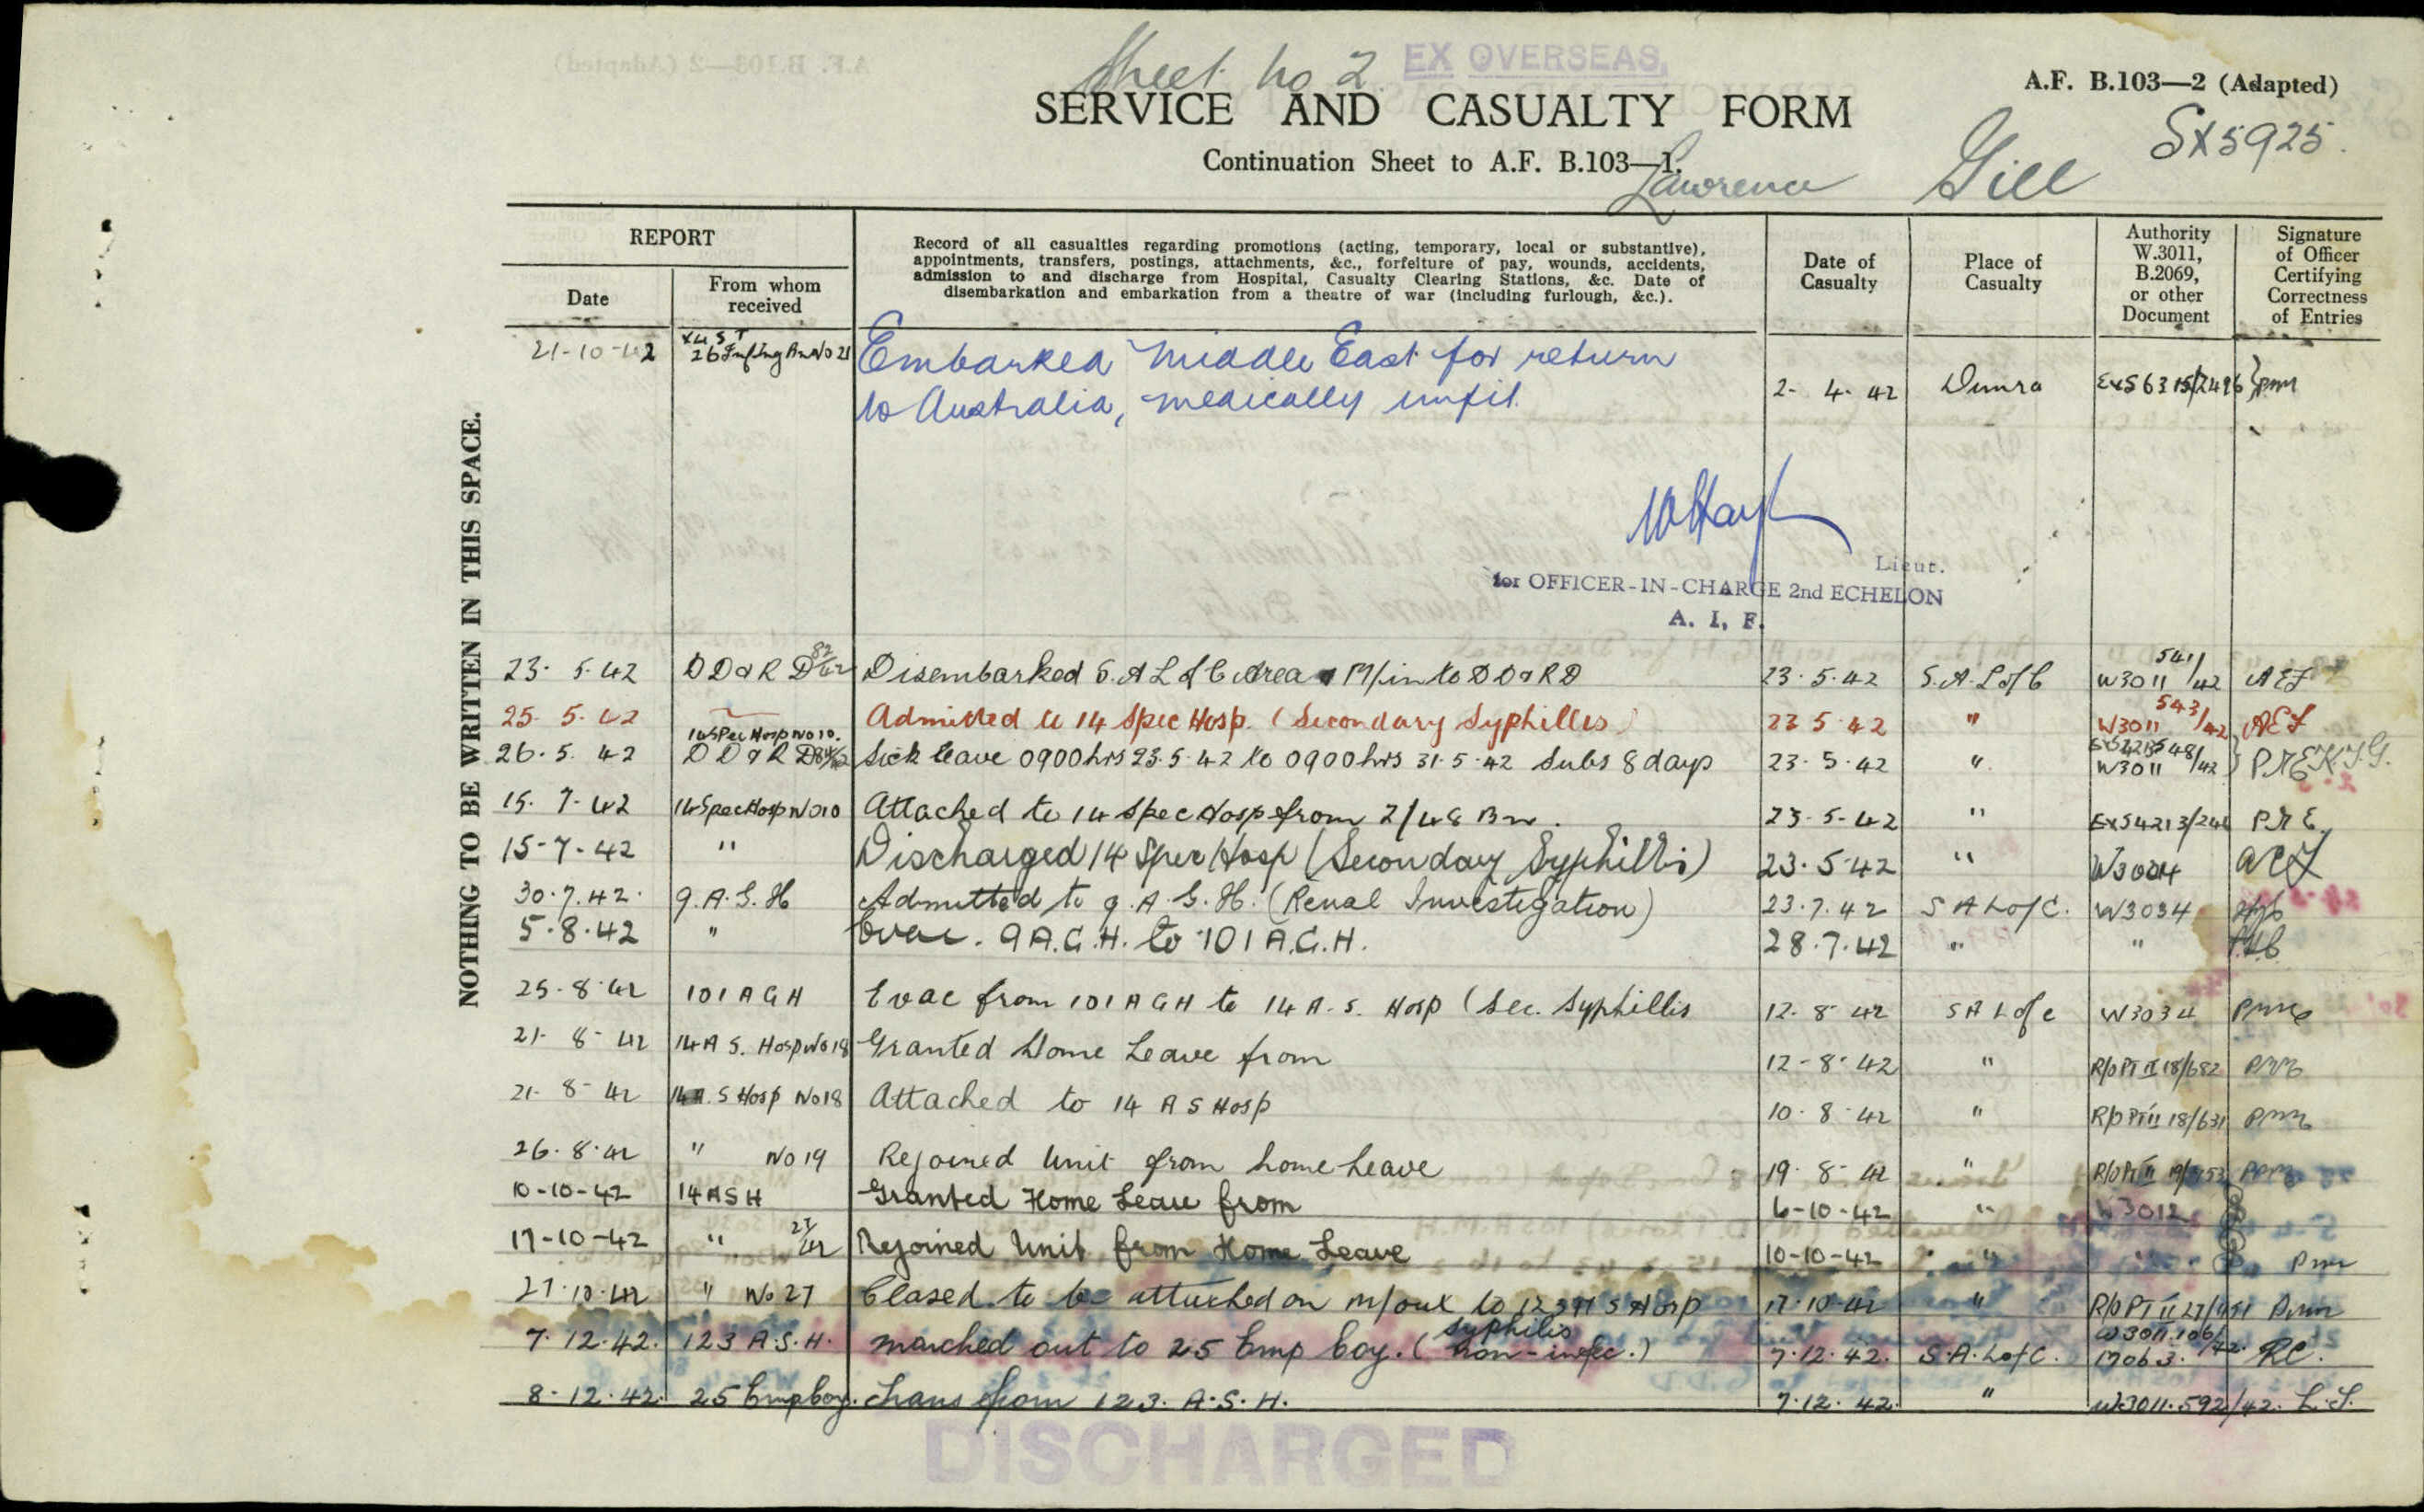 Sheet No 2 EX OVERSEAS.
A.F. B.103—2 (Adapted)
SERVICE AND CASUALTY FORM
SX5925.
Continuation Sheet to A.F. B.103—1.
Lawrence Gill
NOTHING TO BE WRITTEN IN THIS SPACE.
REPORT
Date
From whom received
Record of all casualties regarding promotions (acting, temporary, local or substantive),
appointments, transfers, postings, attachments, &c., forfeiture of pay, wounds, accidents,
admission to and discharge from Hospital, Casualty Clearing Stations, &c. Date of
disembarkation and embarkation from a theatre of war (including furlough, &c.).
Date of Casualty
Place of Casualty
Authority W.3011, B.2069, or other Document
Signature of Officer Certifying Correctness of Entries
21-10-42 Embarked Middle East for return
to Australia, medically unfit. 2-4-42
Lieut.
for OFFICER-IN-CHARGE 2nd ECHELON
A. I. F.
23.5.42 DD & RD Disembarked S.A L of C Area M/in to DD & RD 23.5.42 S.A. L of C W3011 541/42 AEF
25.5.42 Admitted to 14 Spec Hosp. (Secondary Syphillis) 23 5 42 " W3011 543/42 AEF
26.5.42 14 Spec Hosp No 10. DD & RD Sick leave 0900 hrs 23.5.42 to 0900 hrs 31.5.42 Subs 8 days 23.5.42 " W3011 548/42
15.7.42 14 Spec Hosp No 10 Attached to 14 Spec Hosp from 2/48 Bn. 23-5-42 "
15-7-42 " Discharged 14 Spec Hosp (Secondary Syphillis) 23.5.42 "
30.7.42. 9.A.G.H Admitted to 9.A.G.H. (Renal Investigation) 23.7.42 S A L of C. W3034
5.8.42 " Evac. 9 A.G.H. to 101 A.G.H. 28.7.42 " "
25.8.42 101 AGH Evac from 101 AGH to 14 A.S. Hosp (Sec. Syphillis 12.8.42 S A L of C W3034
21-8-42 14 A S. Hosp No 18 Granted Home Leave from 12-8-42 " R/O PT II 18/682
21-8-42 14 A. S Hosp No 18 Attached to 14 A S Hosp 10.8.42 " R/O PT II 18/631
26.8.42 " No 19 Rejoined Unit from home leave 19.8.42 "
10-10-42 14 ASH Granted Home Leave from 6-10-42 " W3012
17-10-42 " 27/42 Rejoined Unit from Home Leave 10-10-42 " "
27.10.42 " No 27 Ceased to be attached on m/out to 123 A S Hosp 17.10.42 "
7.12.42. 123 A.S.H. marched out to 25 Emp Coy. (syphilis non-infec.) 7.12.42. S.A. L of C. RC.
8-12-42. 25 Emp Coy. trans from 123. A.S.H. 7.12.42. " W.3011.592/42.
DISCHARGED